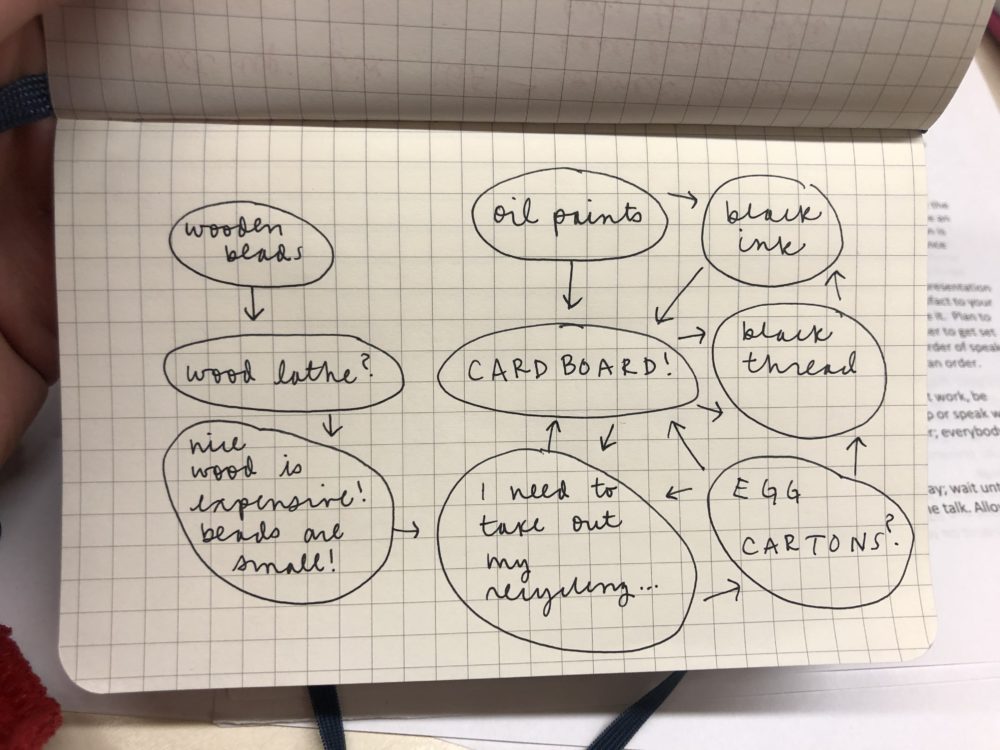 wooden
beads
wood lathe?
nice
wood is
expensive!
beads are
small!
oil paints
black
ink
CARDBOARD!
black
thread
I need to
take out
my
recycling...
EGG
CARTONS?
the
an
is
presentation
fact to your
it. Plan to
er to get set
rder of speak
an order.
t work, be
p or speak w
r; everybody
ay; wait unt
e talk. Allow